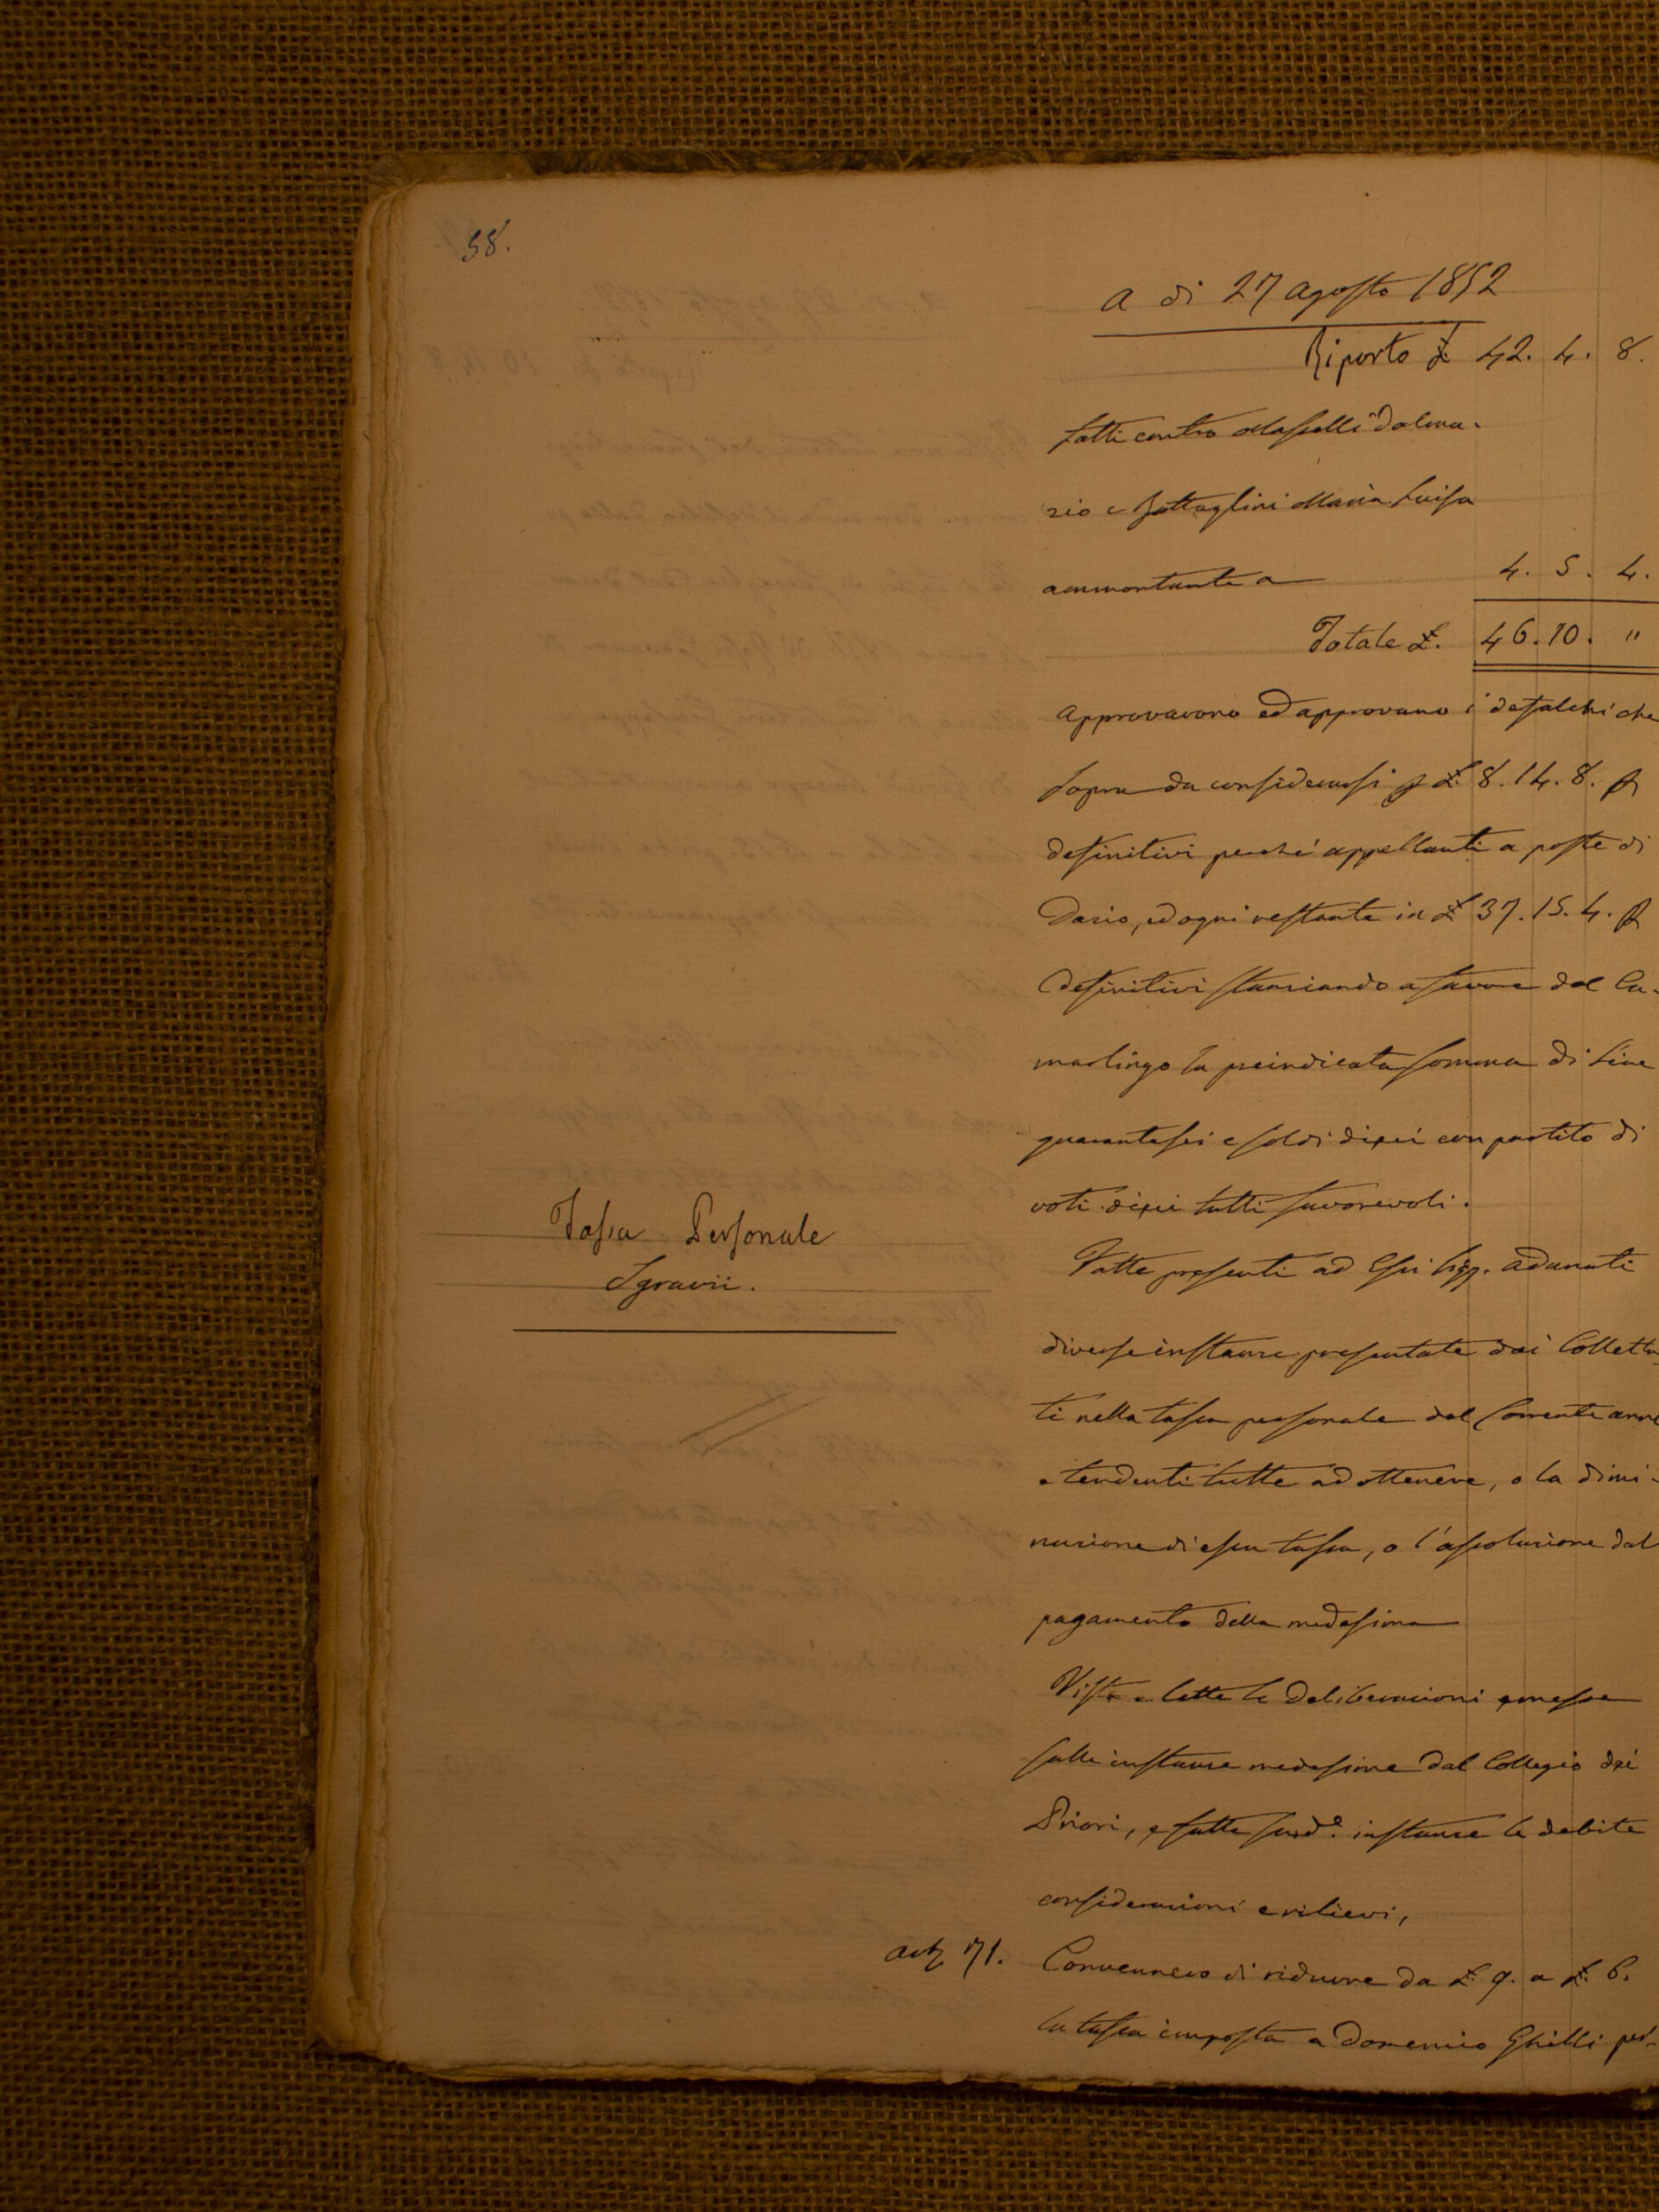 58.
a di 27 agosto 1852
Riporto £ 42. 4. 8.
fatti contro Masselli Dalma-
zio e Battaglini Maria Luisa
ammontante a 4. 5. 4.
Totale £. 46. 10. "
approvavono ed approvano i defalchi che
sopra da considerarsi p £ 8. 14. 8. p
definitivi perché appellanti a poste di
Dazio, ed ogni restante in £ 37. 15. 4. p
definitivi stanziando a favore del Ca-
marlingo la preindicata somma di Lire
quarantasei e soldi dieci con partito di
voti dieci tutti favorevoli.
Tassa Personale
Sgravii.
Fatte presenti ad Essi Sigg. adunati
diverse instanze presentate dai Colletta-
ti nella tassa personale del Corrente anno
e tendenti tutte ad ottenere, o la dimi-
nuzione di essa tassa, o l'assoluzione dal
pagamento della medesima
Viste e lette le deliberazioni emesse
sulle instanze medesime dal Collegio dei
Priori, e fatte su dᵉ. instanze le debite
considerazioni e rilievi,
71.
Convennero di ridurre da £. 9. a £. 6.
la tassa imposta a Domenico Ghilli per